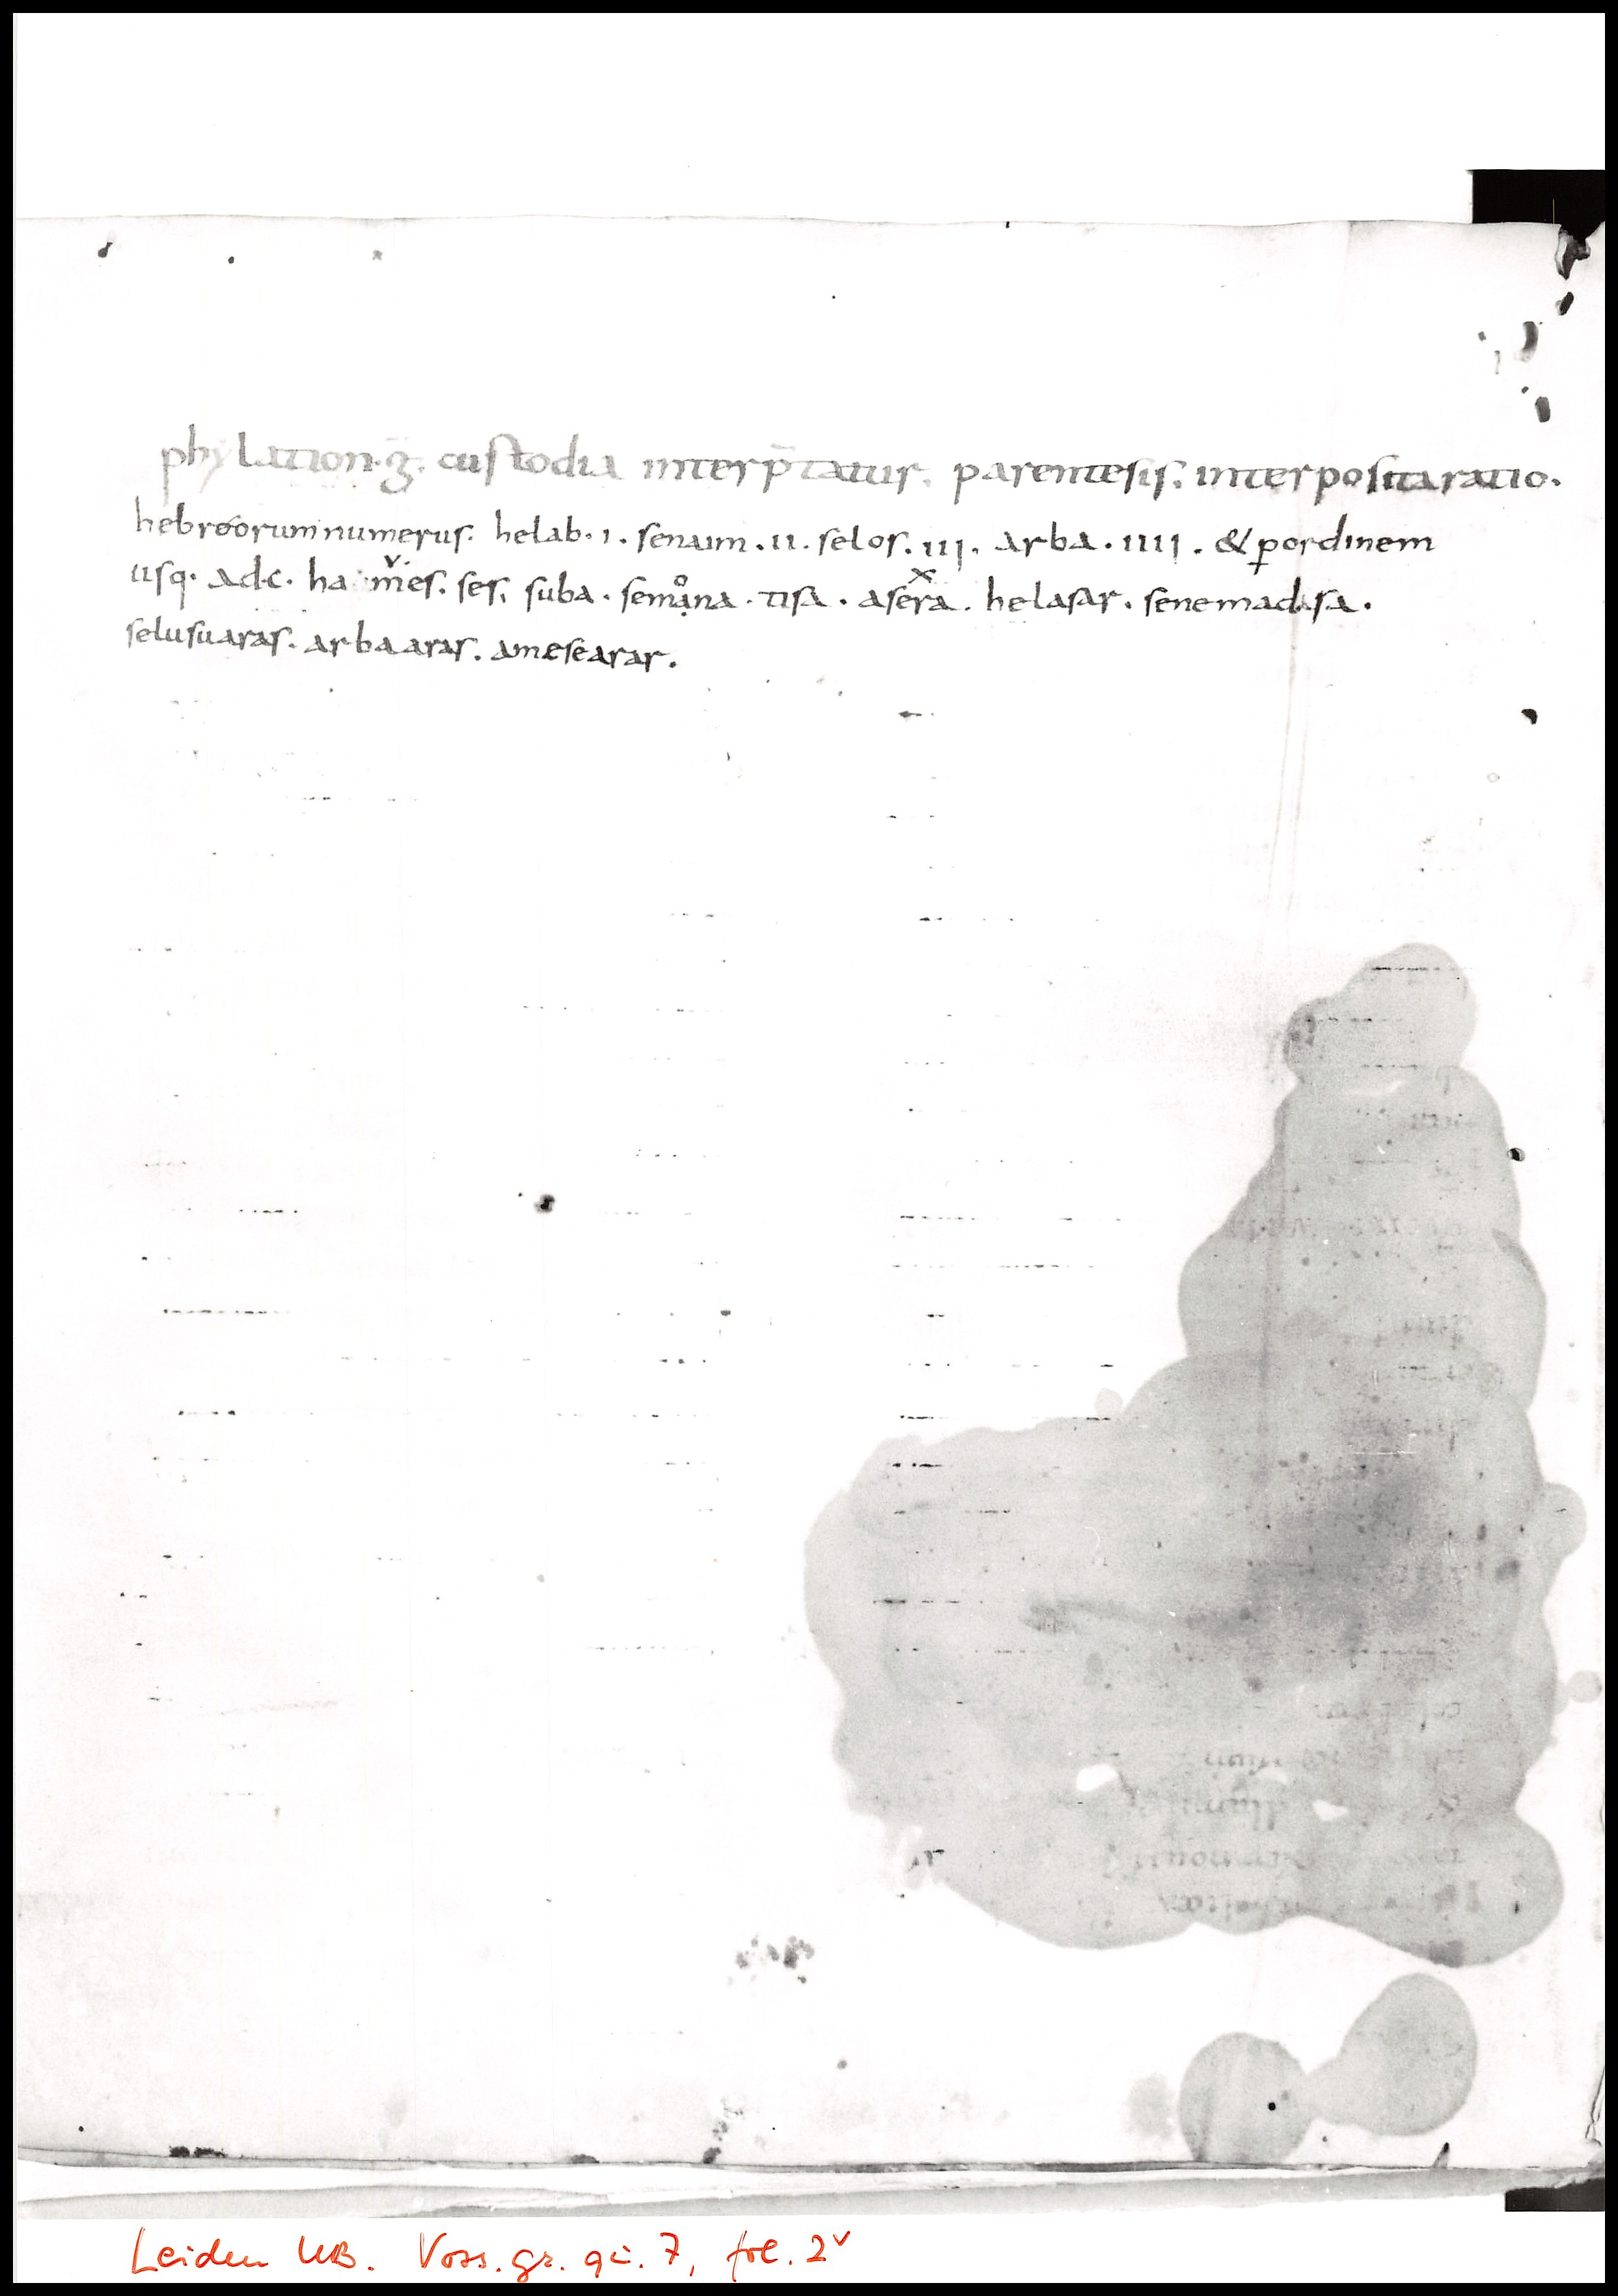 phylation·g̅· custodia interp̅tatur. parentesis; interposita ratio.
hebreorum numerus. helab. i. senaim. ii. selos. iii. arba. iiii. & ꝑordinem
usq. adc. hames. ses. suba. semana. tisa. asera. helasar. senemadasa.
selusuaras. arbaaras. amesearar.
Leiden UB. Voss. gr. qu. 7, fol. 2v